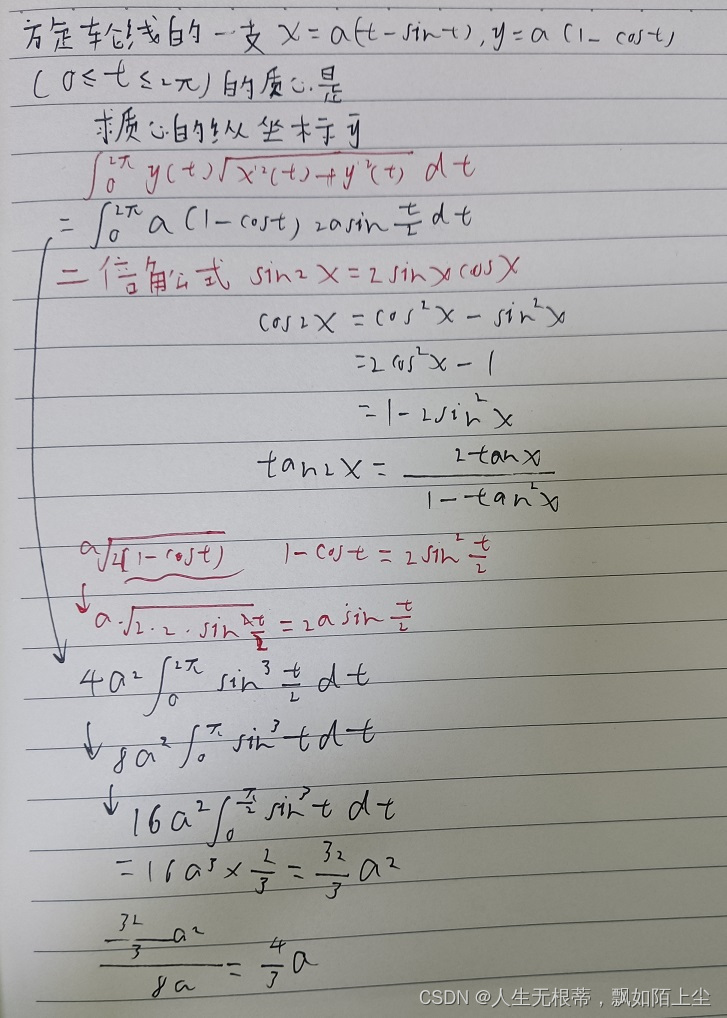 方定车仑线的一支 x = a(t - sint), y = a (1 - cost)
(0 ≤ t ≤ 2π) 的质心是
求质心的纵坐标 ȳ
∫₀^{2π} y(t) √(x'²(t) + y'²(t)) dt
= ∫₀^{2π} a (1 - cost) 2a sin t/2 dt
二倍角公式 sin2x = 2sinxcosx
cos2x = cos²x - sin²x
= 2cos²x - 1
= 1 - 2sin²x
tan2x = 2tanx / (1 - tan²x)
a√(2(1 - cost)) 1 - cost = 2sin² t/2
↓ a·√(2·2·sin² t/2) = 2a sin t/2
4a² ∫₀^{2π} sin³ t/2 dt
↓ 8a² ∫₀^{π} sin³t dt
↓ 16a² ∫₀^{π/2} sin³t dt
= 16a³ × 2/3 = 32/3 a²
(32/3 a²) / 8a = 4/3 a
CSDN @人生无根蒂，飘如陌上尘